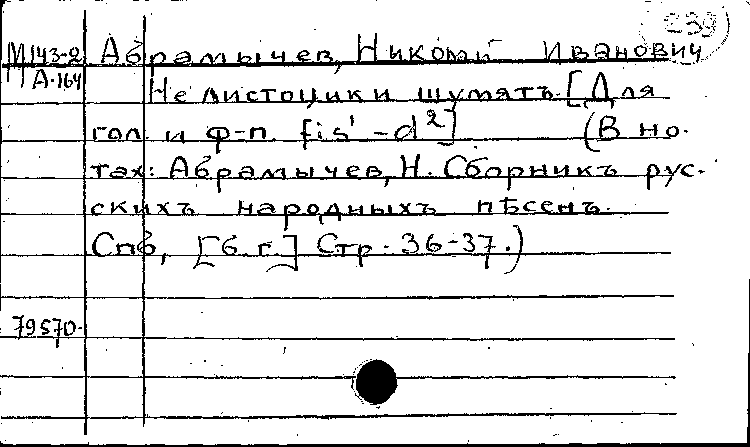 239
М143-2 Абрамычев, Николай Иванович
А-164
Не листоцики шумятъ. [Для
гол. и ф-п. fis¹-d²] (В но-
тах: Абрамычев, Н. Сборникъ рус-
скихъ народныхъ пѣсенъ.
Спб, [б. г.] Стр. 36-37.)
79570.